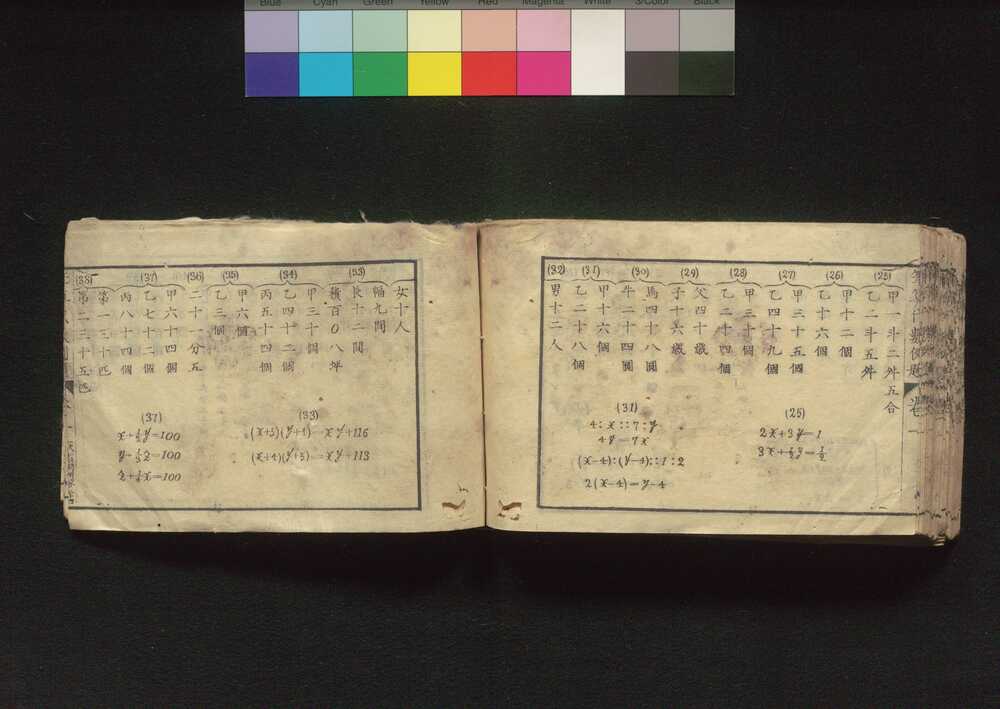 Blue Cyan Green Yellow Red Magenta White 3/Color Black
(25)
甲一斗二舛五合
乙二斗五舛
(26)
甲十二個
乙十六個
(27)
甲三十五個
乙四十九個
(28)
甲三十個
乙二十四個
(29)
父四十歳
子十六歳
(30)
馬四十八圓
牛二十四圓
(31)
甲十六個
乙二十八個
(32)
男十二人
(25)
2x+3y=1
3x+½y=½
(31)
4:x::7:y
4y=7x
(x-4):(y-4)::1:2
2(x-4)=y-4
女十人
(33)
幅九間
長十二間
積百〇八坪
(34)
甲三十個
乙四十二個
丙五十四個
(35)
甲六個
乙三個
(36)
二十一分五
(37)
甲六十四個
乙七十二個
丙八十四個
(38)
第一三十匹
第二三十五匹
(33)
(x+5)(y+4)=xy+116
(x+4)(y+5)=xy+113
(37)
x+½y=100
y+⅓z=100
z+¼x=100